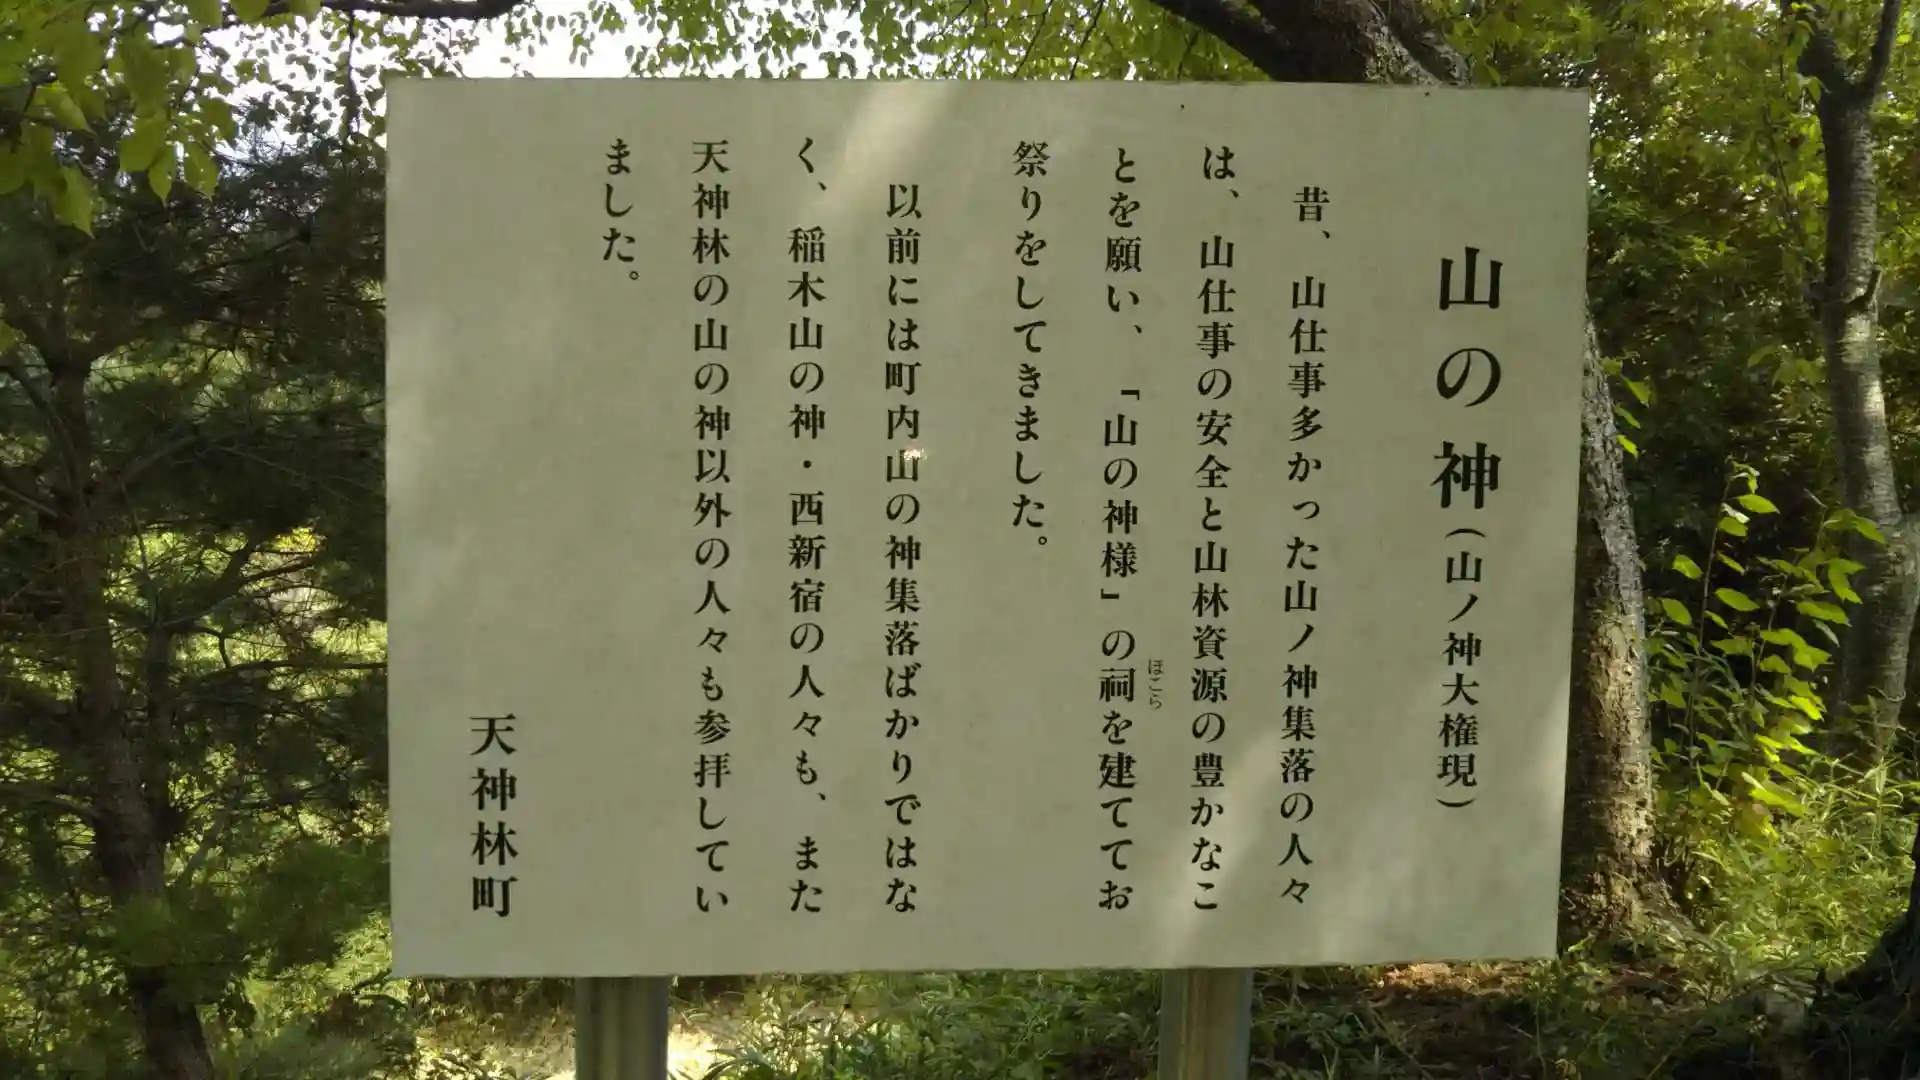 山の神(山ノ神大権現)
昔、山仕事多かった山ノ神集落の人々
は、山仕事の安全と山林資源の豊かなこ
とを願い、「山の神様」の祠を建ててお
ほこら
祭りをしてきました。
以前には町内山の神集落ばかりではな
く、稲木山の神・西新宿の人々も、また
天神林の山の神以外の人々も参拝してい
ました。
天神林町